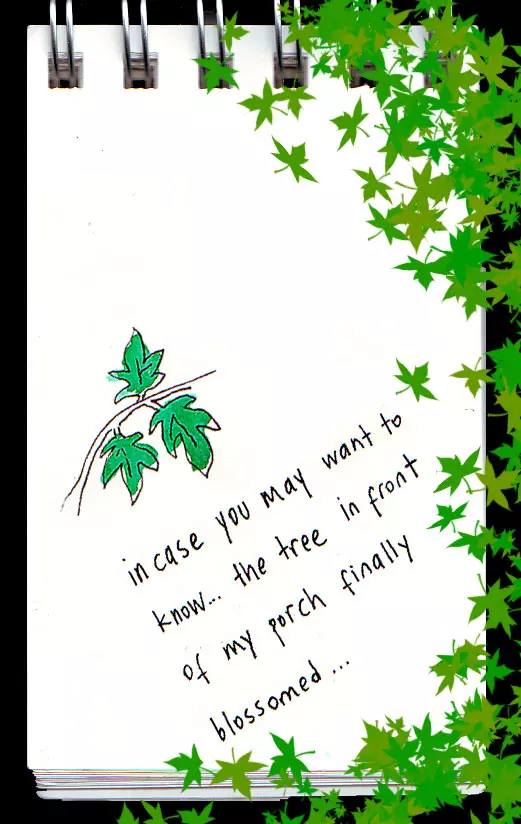 in case you may want to
know... the tree in front
of my porch finally
blossomed...